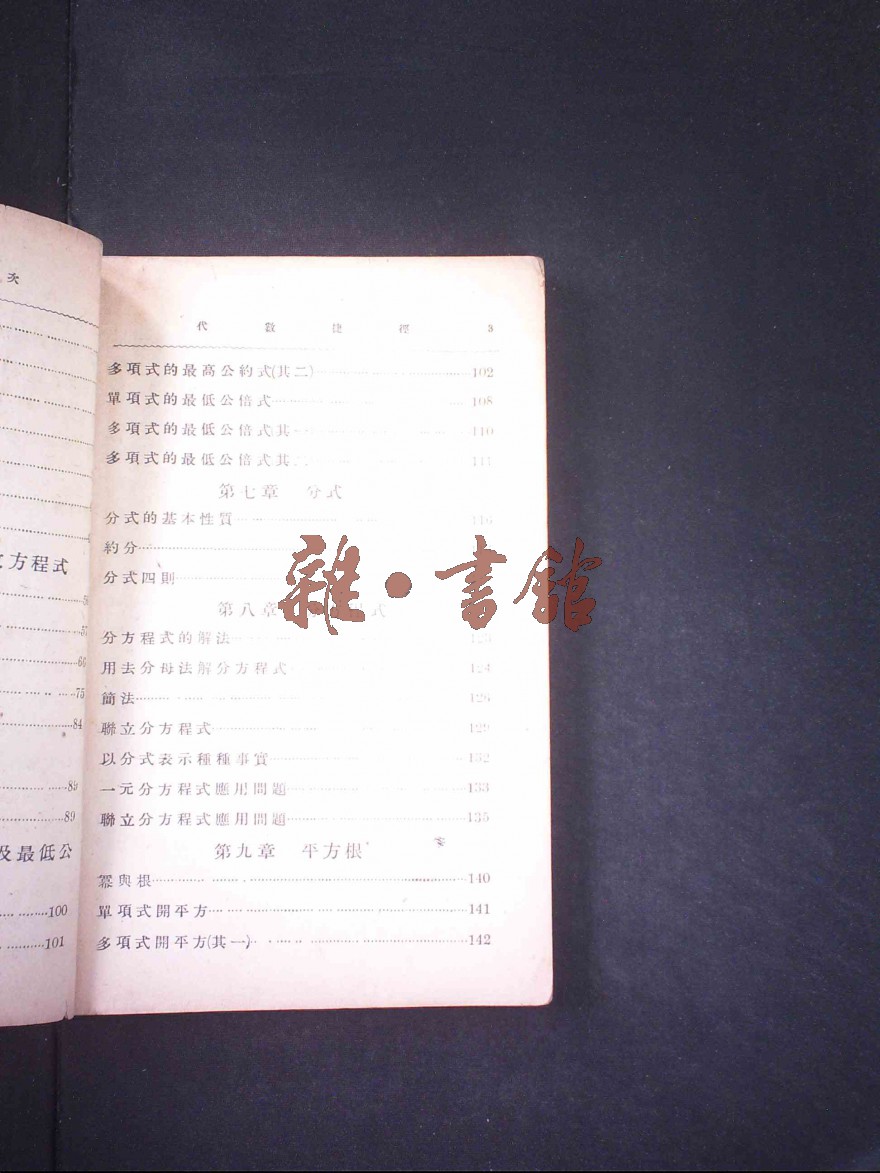 次
84
75
60
57
方程式
89
89
及最低公
100
101
代數捷徑 3
多項式的最高公約式(其二) 102
單項式的最低公倍式 108
多項式的最低公倍式(其 110
多項式的最低公倍式(其 111
第七章 分式
分式的基本性質 116
約分
分式四則
第八章
雜·書館
分方程式的解法 123
用去分母法解分方程式 124
簡法 126
聯立分方程式 129
以分式表示種種事實 132
一元分方程式應用問題 133
聯立分方程式應用問題 135
第九章 平方根
冪與根 140
單項式開平方 141
多項式開平方(其一) 142